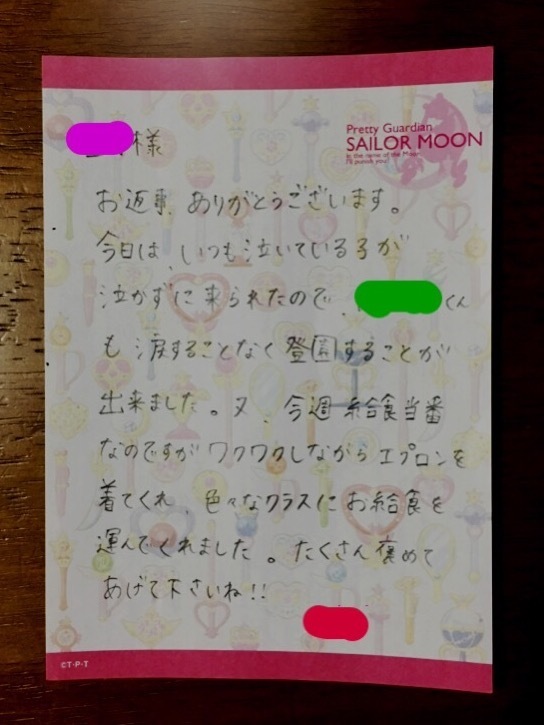 様
Pretty Guardian
SAILOR MOON
In the name of the Moon,
I'll punish you!
お返事、ありがとうございます。
今日は、いつも泣いている子が
泣かずに来られたので、くん
も涙することなく登園することが
出来ました。又、今週給食当番
なのですがワクワクしながらエプロンを
着てくれ、色々なクラスにお給食を
運んでくれました。たくさん褒めて
あげて下さいね!!
©T・P・T